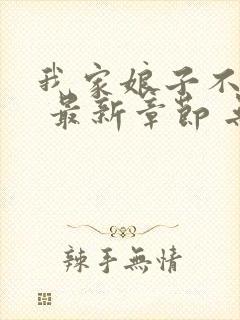 我家娘子不
最新章節
辣手無情